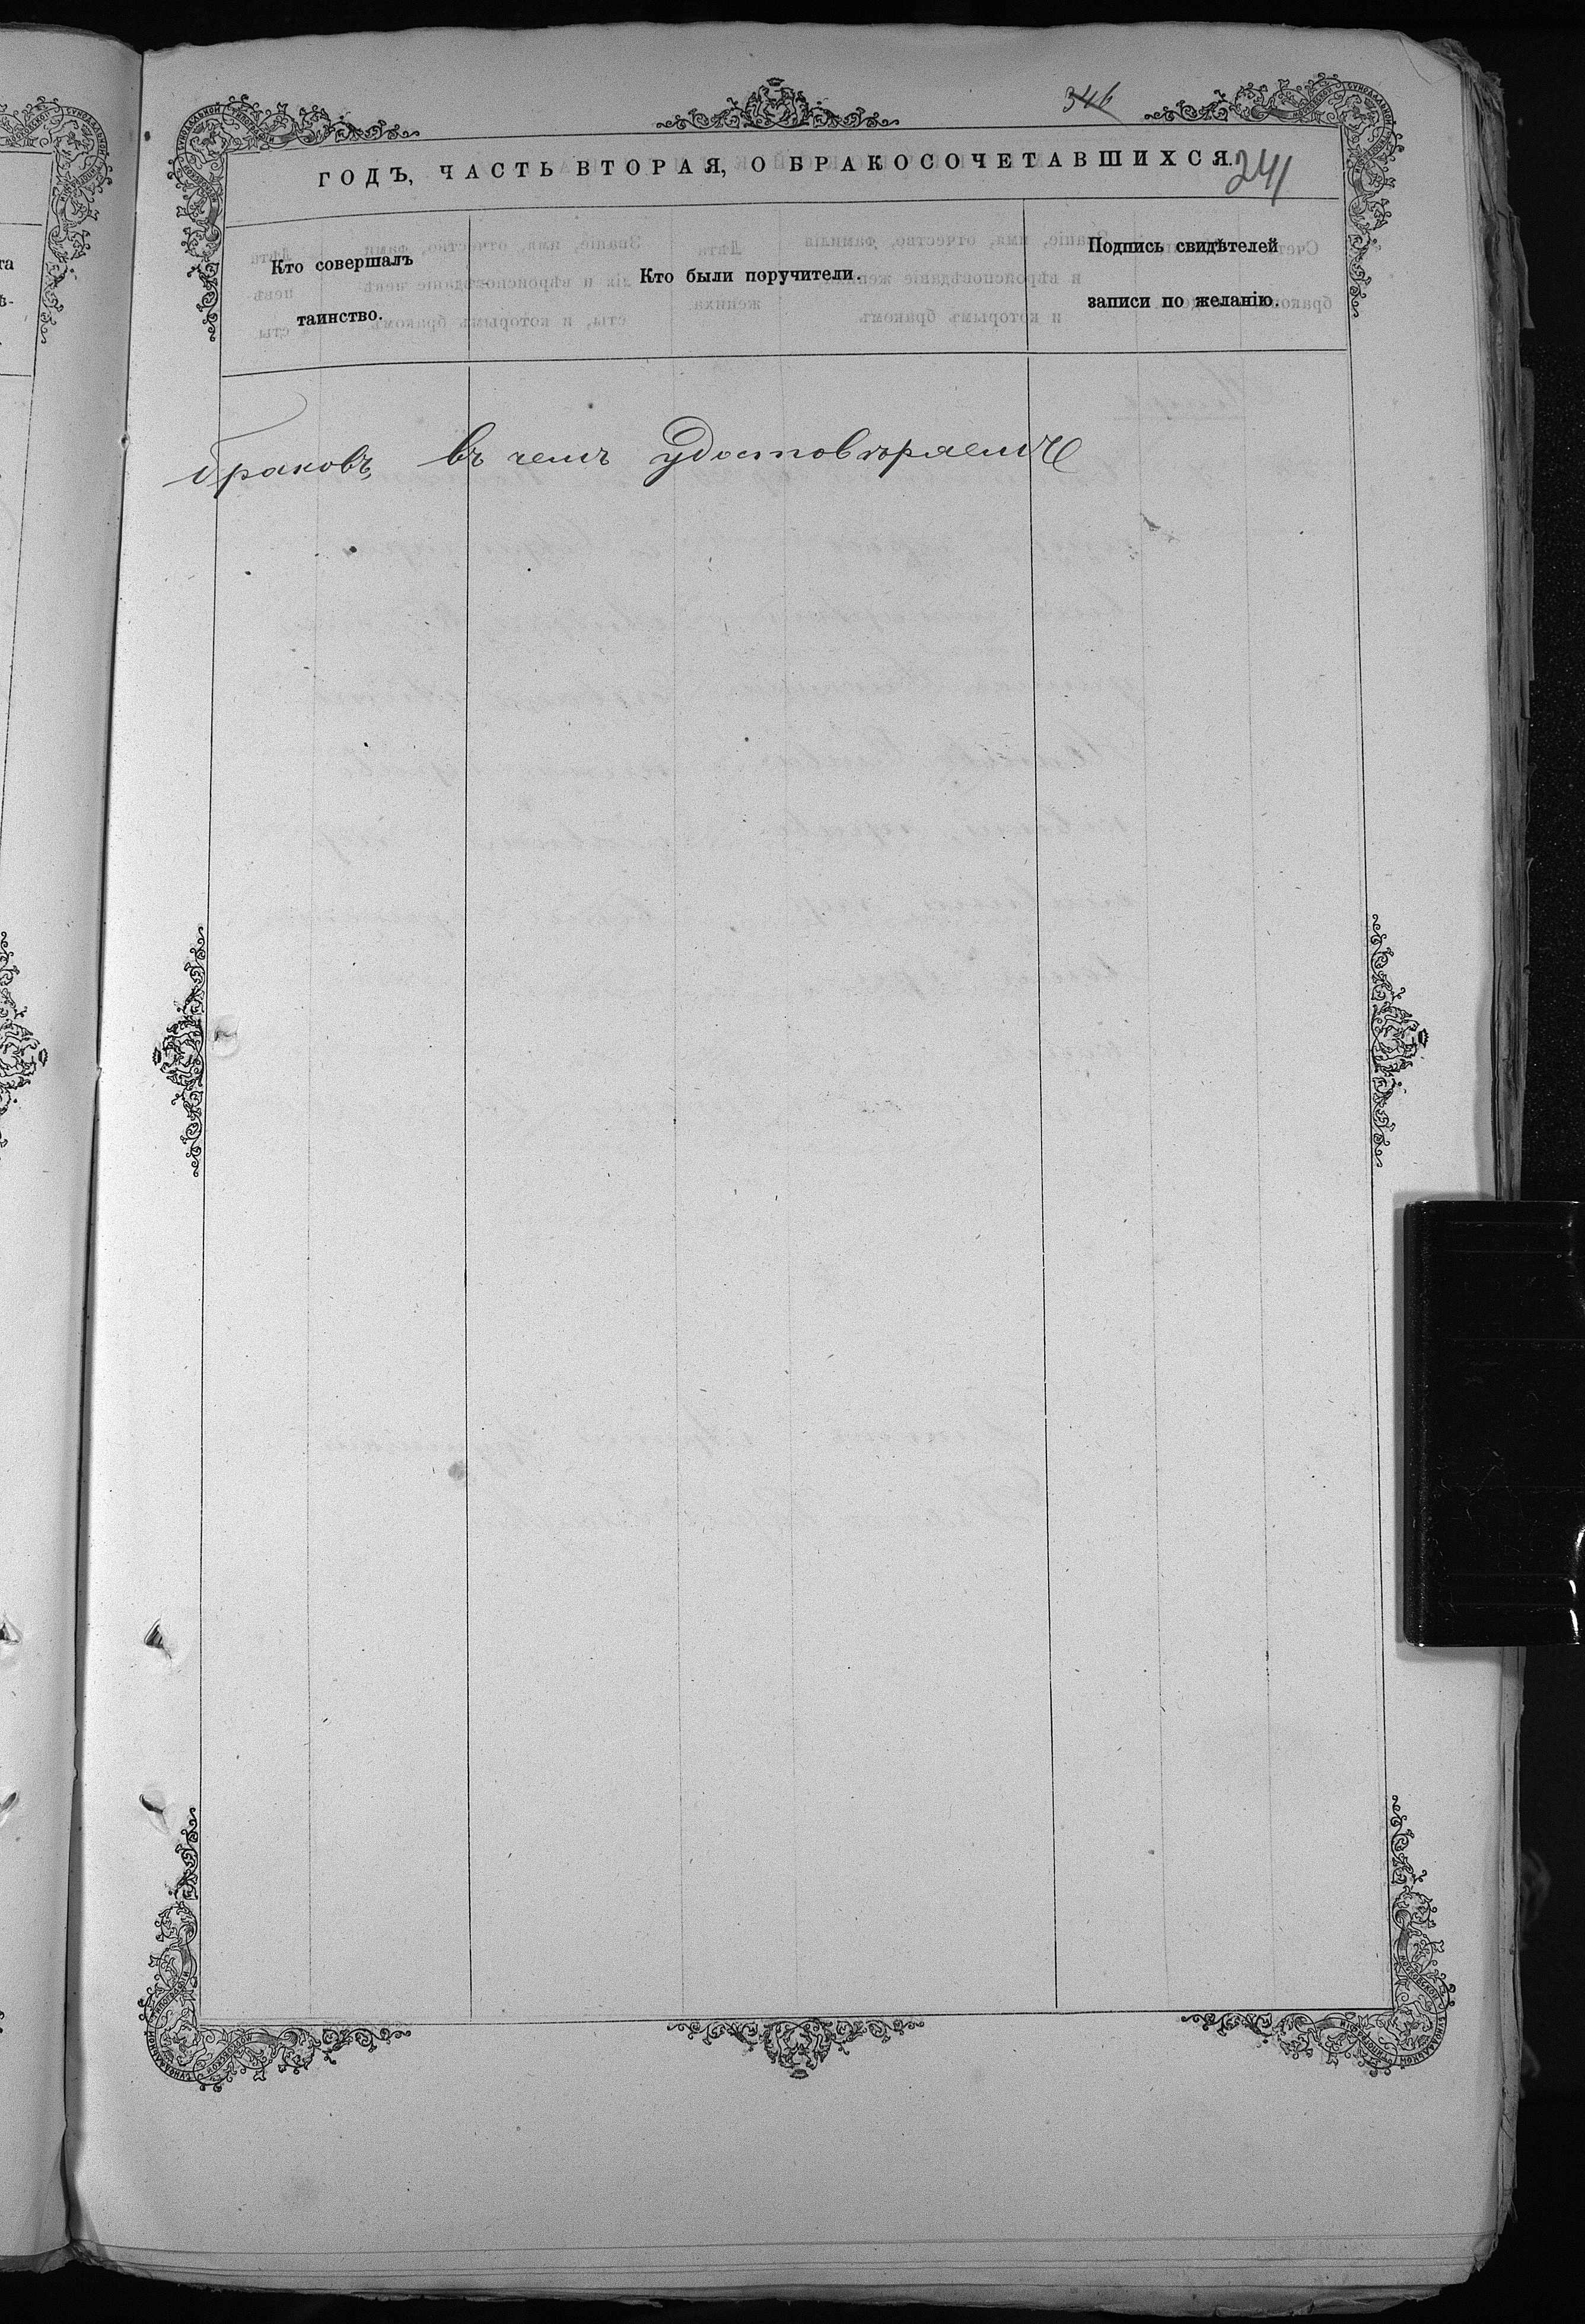 346
241
ГОДЪ, ЧАСТЬ ВТОРАЯ, О БРАКОСОЧЕТАВШИХСЯ.
Кто совершалъ
таинство.
Кто были поручители.
Подпись свидѣтелей
записи по желанію.
браковъ, въ чемъ удостовѣряемъ